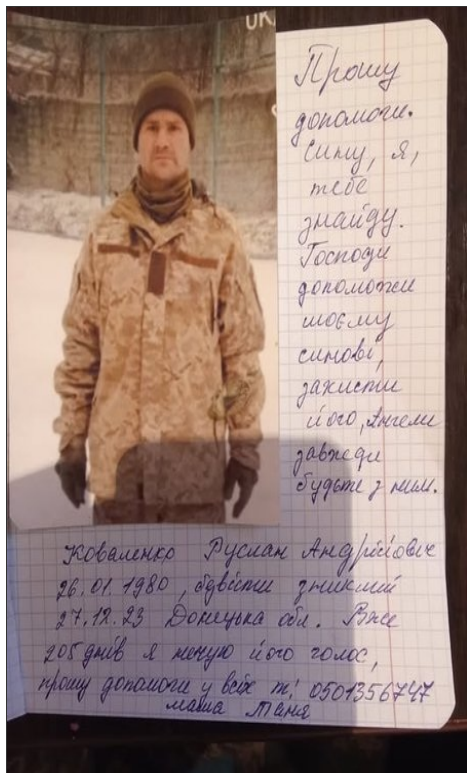 UK
Прошу
допомоги.
Сину, я,
тебе
знайду.
Господи
допоможи
моєму
синові,
захисти
його, Ангели
завжди
будьте з ним.
Коваленко Руслан Андрійович
26.01.1980, бдвісти зниклий
27.12.23 Донецька обл. Вже
205 днів я нечую його голос,
прошу допомоги у всіх т. 0501356747
мама Таня